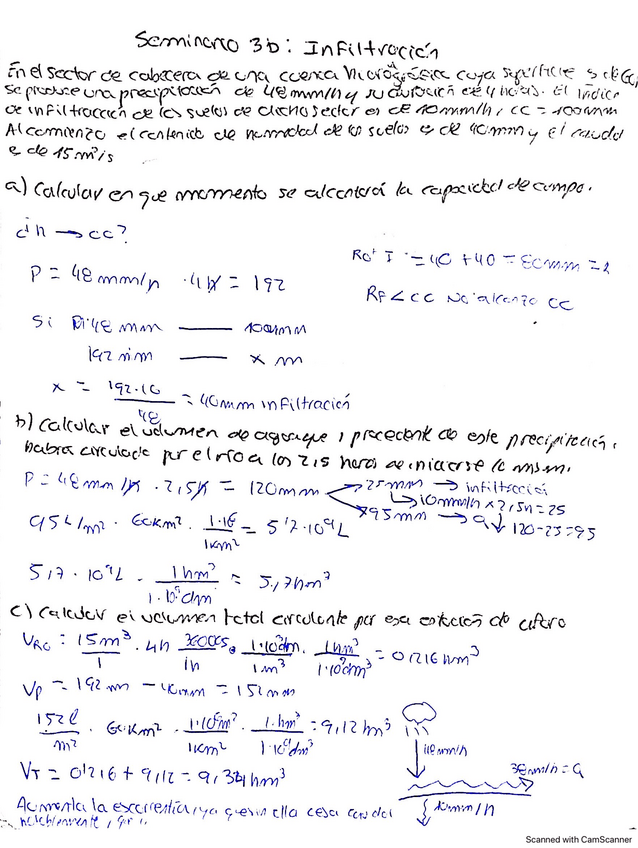 Seminario 3b: Infiltración
En el sector de cabecera de una cuenca hidrográfica cuya superficie s de 60
se produce una precipitación de 48mm/h y su duración de 4 horas. El índice
de infiltración de los suelos de dicho sector es de 10mm/h, CC = 100mm
Al comienzo el contenido de humedad de los suelos es de 40mm y el caudal
e de 15 m³/s
a) Calcular en que momento se alcanzará la capacidad de campo.
¿h → CC?
P = 48mm/h · 4h = 192
R0+ I = 40 + 40 = 80mm =
RF < CC No alcanza CC
Si 48 mm — 10mm
192mm — x m
x = 192·10 / 48 = 40mm infiltración
b) Calcular el volumen de agua que, procedente de este precipitación,
habrá circulado por el río a los 2,5 horas de iniciarse la mism.
P = 48mm/h · 2,5h = 120mm
25mm → infiltración
↳ 10mm/h × 2,5h = 25
95mm → Q ↓ 120-25=95
95L/m² · 60Km² · 1·10⁶m² / 1Km² = 5'7·10⁹L
5,7·10⁹L · 1hm³ / 1·10⁹dm³ = 5,7hm³
c) Calcular el volumen total circulante por esa estación de aforo
VR0 = 15m³ / 1 · 4h 3600s / 1h · 1·10³dm³ / 1m³ · 1hm³ / 1·10⁹dm³ = 0'216hm³
Vp = 192mm - 40mm = 152mm
152l / m² · 60Km² · 1·10⁶m² / 1Km² · 1·hm³ / 1·10⁹dm³ = 9,12hm³
48mm/h
38mm/h = Q
10mm/h
VT = 0'216 + 9,12 = 9,34hm³
Aumenta la escorrentía, ya que sin ella cesa
Scanned with CamScanner